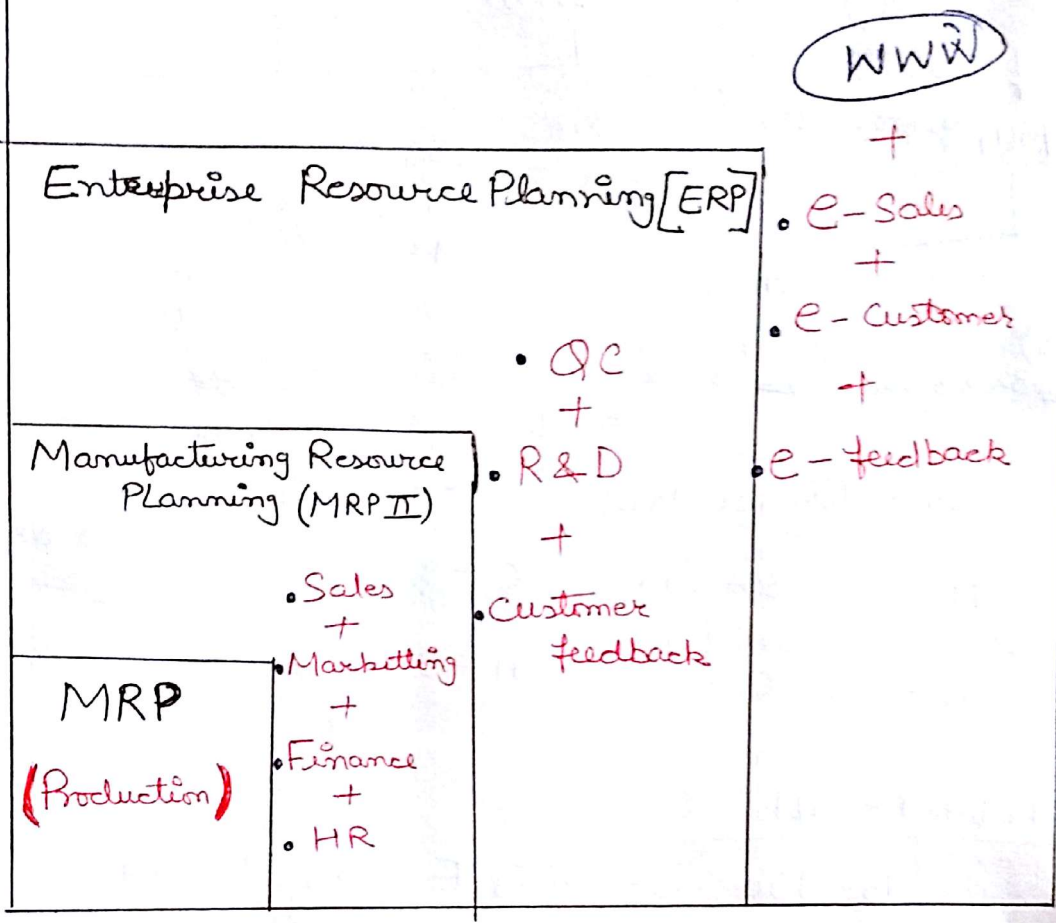 WWW
+
Enterprise Resource Planning [ERP]
• e-Sales
+
• e-customer
+
• e-feedback
• QC
+
• R&D
+
• Customer
feedback
Manufacturing Resource
Planning (MRP II)
• Sales
+
• Marketting
+
• Finance
+
• HR
MRP
(Production)